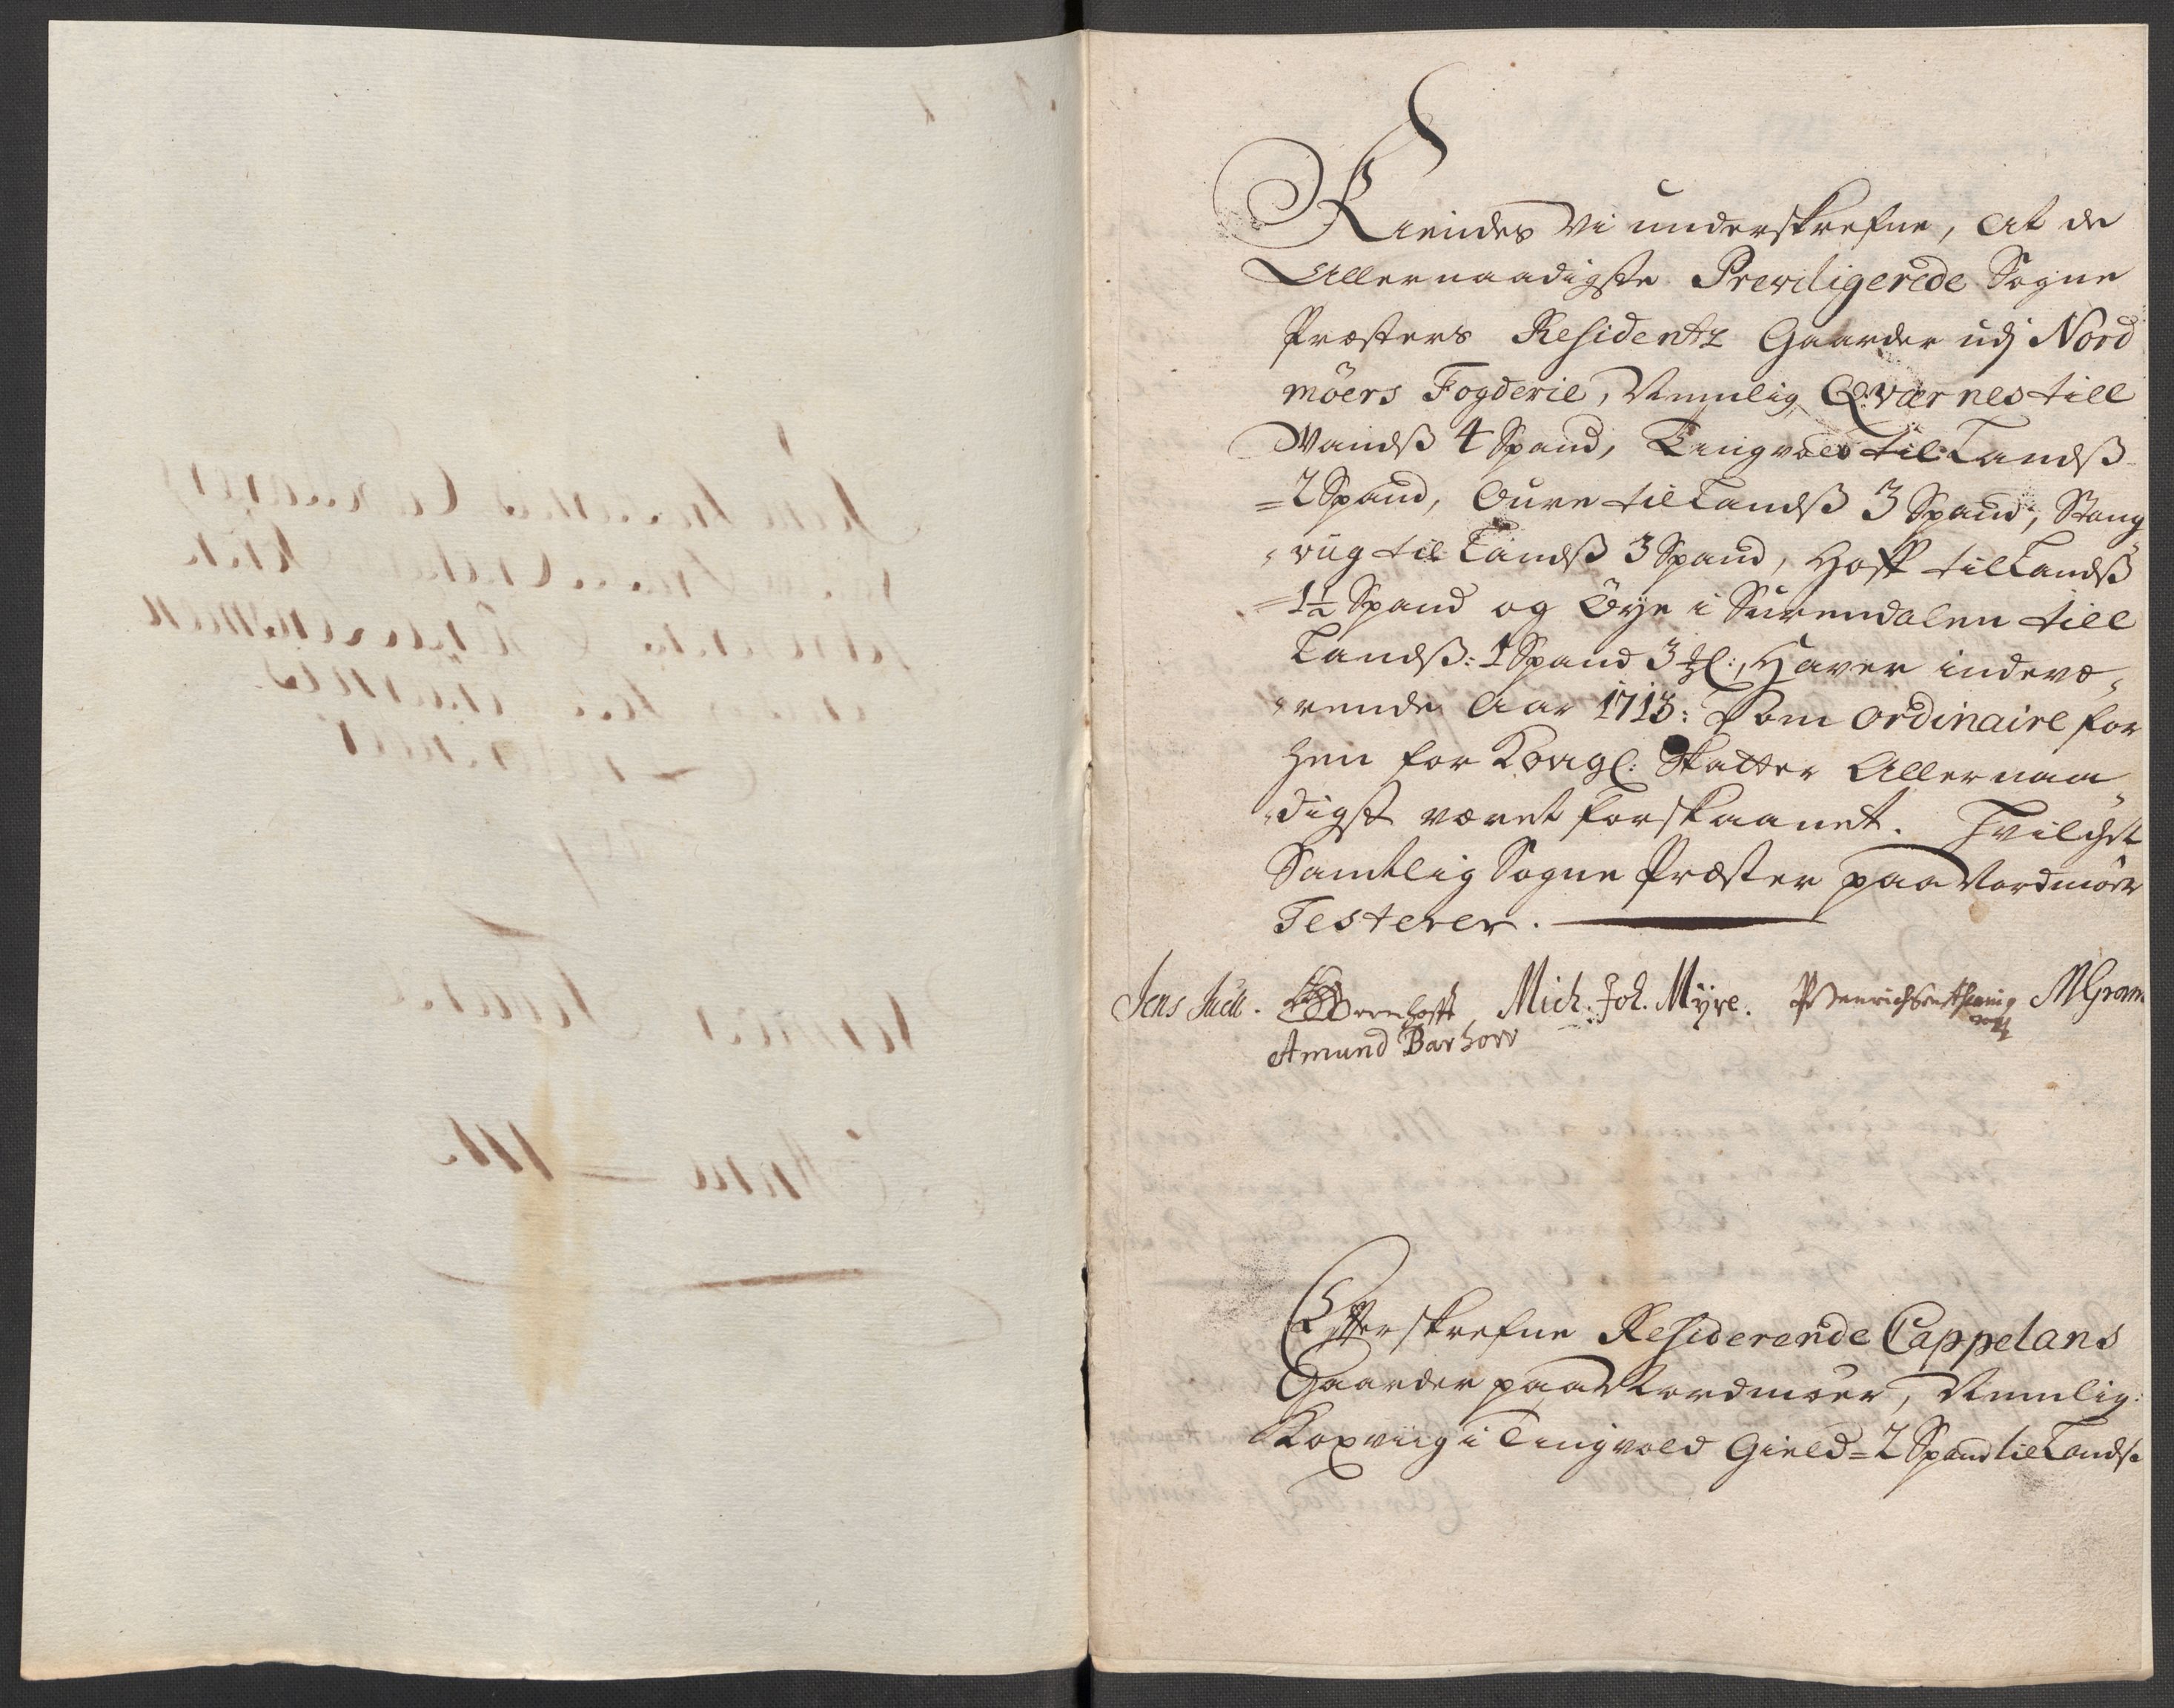 Kiendes Vi underskrefne, at de
Allernaadigste Previligerede Sogne
Præsters Residentz Gaarder udj Nord
möers Fogderie, Nemlig Qværnes till
Landß 4 Spand, Tingvold til Landß
=2 Spand, Oure til Landß 3 Spand, Stang
„vüg til Landß 3 Spand, Hoff til Landß
=1½ Spand og Öye i Surendalen till
Landß: 1 Spand 3 Ml:, Haver indevæ„
„rende Aar 1713: som ordinaire for
hen for Kongl: Skatter Allernaa„
„digst været forskaanet. Hvilchet
Samtlig Sogne Præster paa Nordmöer
Testerer.
Jens Juell. Mich. Joh. Myre. MGram
Amund Barhow
Efterskrefne Residerende Cappelans
Gaarder paa Nordmöer, Nemlig:
Koxviig i Tingvold Gield = 2 Spand til Landß